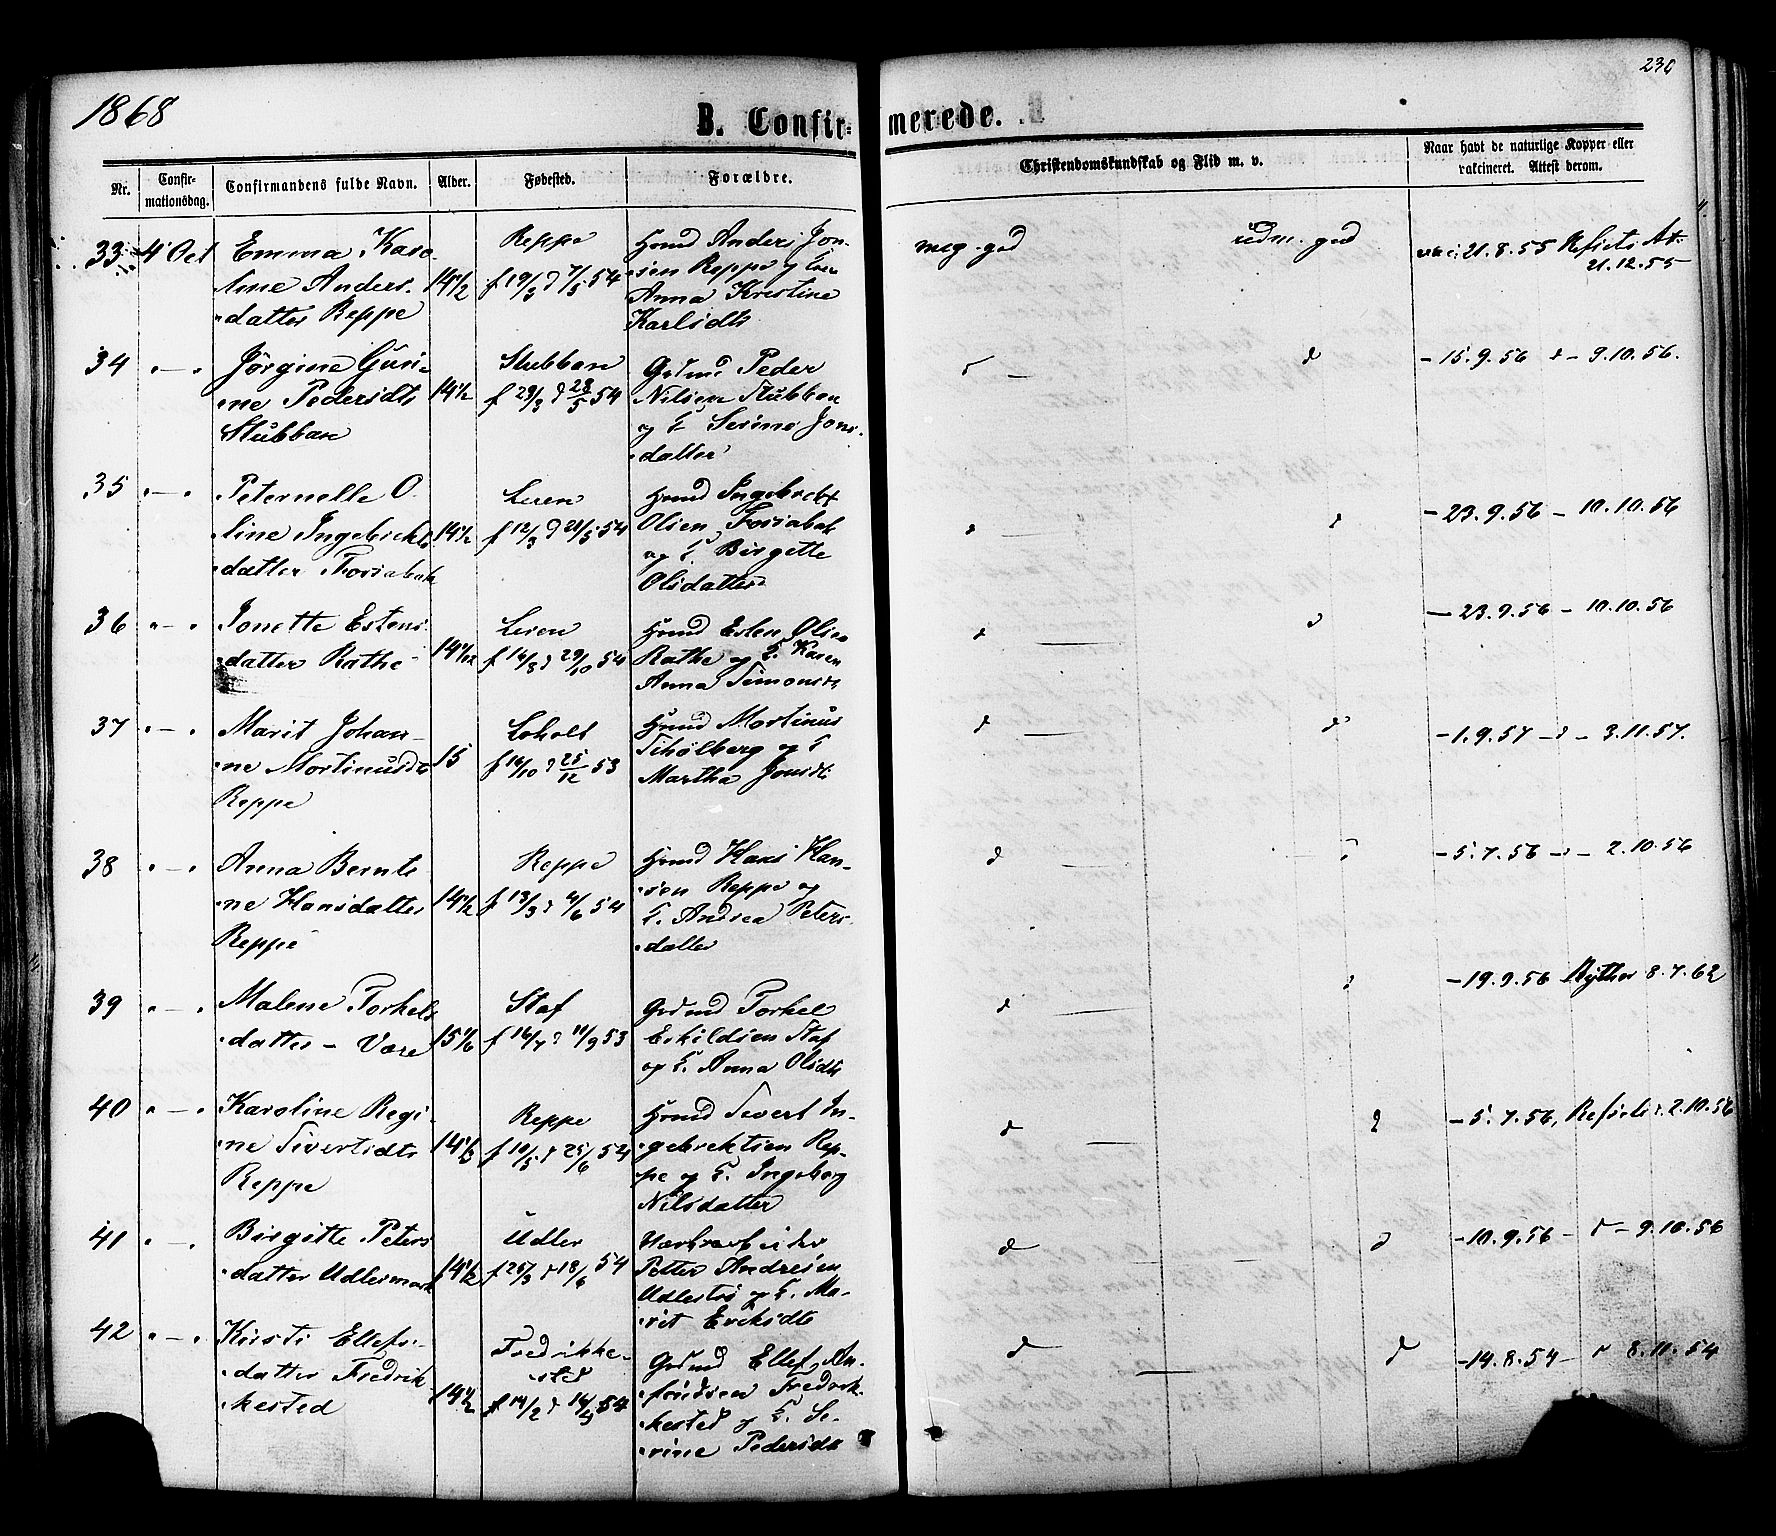 230
1868
B. Confirmerede.
Nr.
Confirmationsdag.
Confirmandens fulde Navn.
Alder.
Fødested.
Forældre.
Christendomskundskab og Flid m. v.
Naar havt de naturlige Kopper eller
vakcineret. Attest derom.
33 4 Oct Emma Karo-
line Anders-
datter Reppe
14 1/2
Reppe
f 19/3 d 7/5 54
Hmd Anders Jon-
sen Reppe og
Anna Kristine
Karlsdtr
meg. god
udm. god
21.8.55 Refiels At.
21.12.55
34 " — " Jørgine Guri-
ne Pedersdtr
Stubban
14 1/2
Stubban
f 29/3 d 28/5 54
Gdmd Peder
Nilsen Stubban
og E Serine Jons-
datter
d
— 15.9.56 d — 9.10.56.
35 " — " Peternelle O-
line Ingebrikts-
datter Forsabak
14 1/2
Leren
f 12/3 d 21/5 54
Hmd Ingebrikt
Olsen Forsabak
og E Birgitte
Olsdatter
d
— 23.9.56 — 10.10.56
36 " — " Jonette Estens-
datter Rathe
Leren
f 14/8 d 29/10 54
Hmd Esten Olsen
Rathe og E. Karen
Anna Simonsdr
d
— 23.9.56 — 10.10.56
37 " — " Marit Johan-
ne Mortinusdr
Reppe
15
Loholt
f 14/10 d 25/12 53
Hmd Mortinus
Sihølberg og E
Martha Jonsdt
d
d
— 1.9.57 — d — 3.11.57.
38 " — " Anna Bernti-
ne Hansdatter
Reppe
14 1/2
Reppe
f 13/3 d 4/6 54
Hmd Hans Han-
sen Reppe og
E. Andrea Peters-
datter
d
— 5.7.56 — d — 2.10.56
39 " — " Malene Torkels-
datter — Være
15 1/6
Staf
f 16/7 d 11/9 53
Gdmd Torkel
Eskildsen Staf
og E. Anna Olsdtr
d
— 19.9.56 Rytter 8.7.62
40 " — " Karoline Regi-
ne Sivertsdtr
Reppe
14 1/3
Reppe
f 10/5 d 25/6 54
Hmd Sivert In-
gebrektsen Rep-
pe og E. Ingeborg
Nilsdatter
d
— 5.7.56, Refiels 2.10.56
41 " — " Birgitte Peters-
datter Udlermark
14 1/2
Udler
f 25/3 d 18/6 54
Petter Andresen
og E. Ma-
rit Eriksdtr
d
d
— 10.9.56 — d — 9.10.56
42 " — " Kirsti Ellefs-
datter Fredrik-
kested
14 1/2
Fredrikke-
sted
f 14/2 d 54
Gdmd Ellef
Fredrik-
kested og E. Se-
rine Pedersdtr
d
d
— 14.8.54 — d 8.11.54